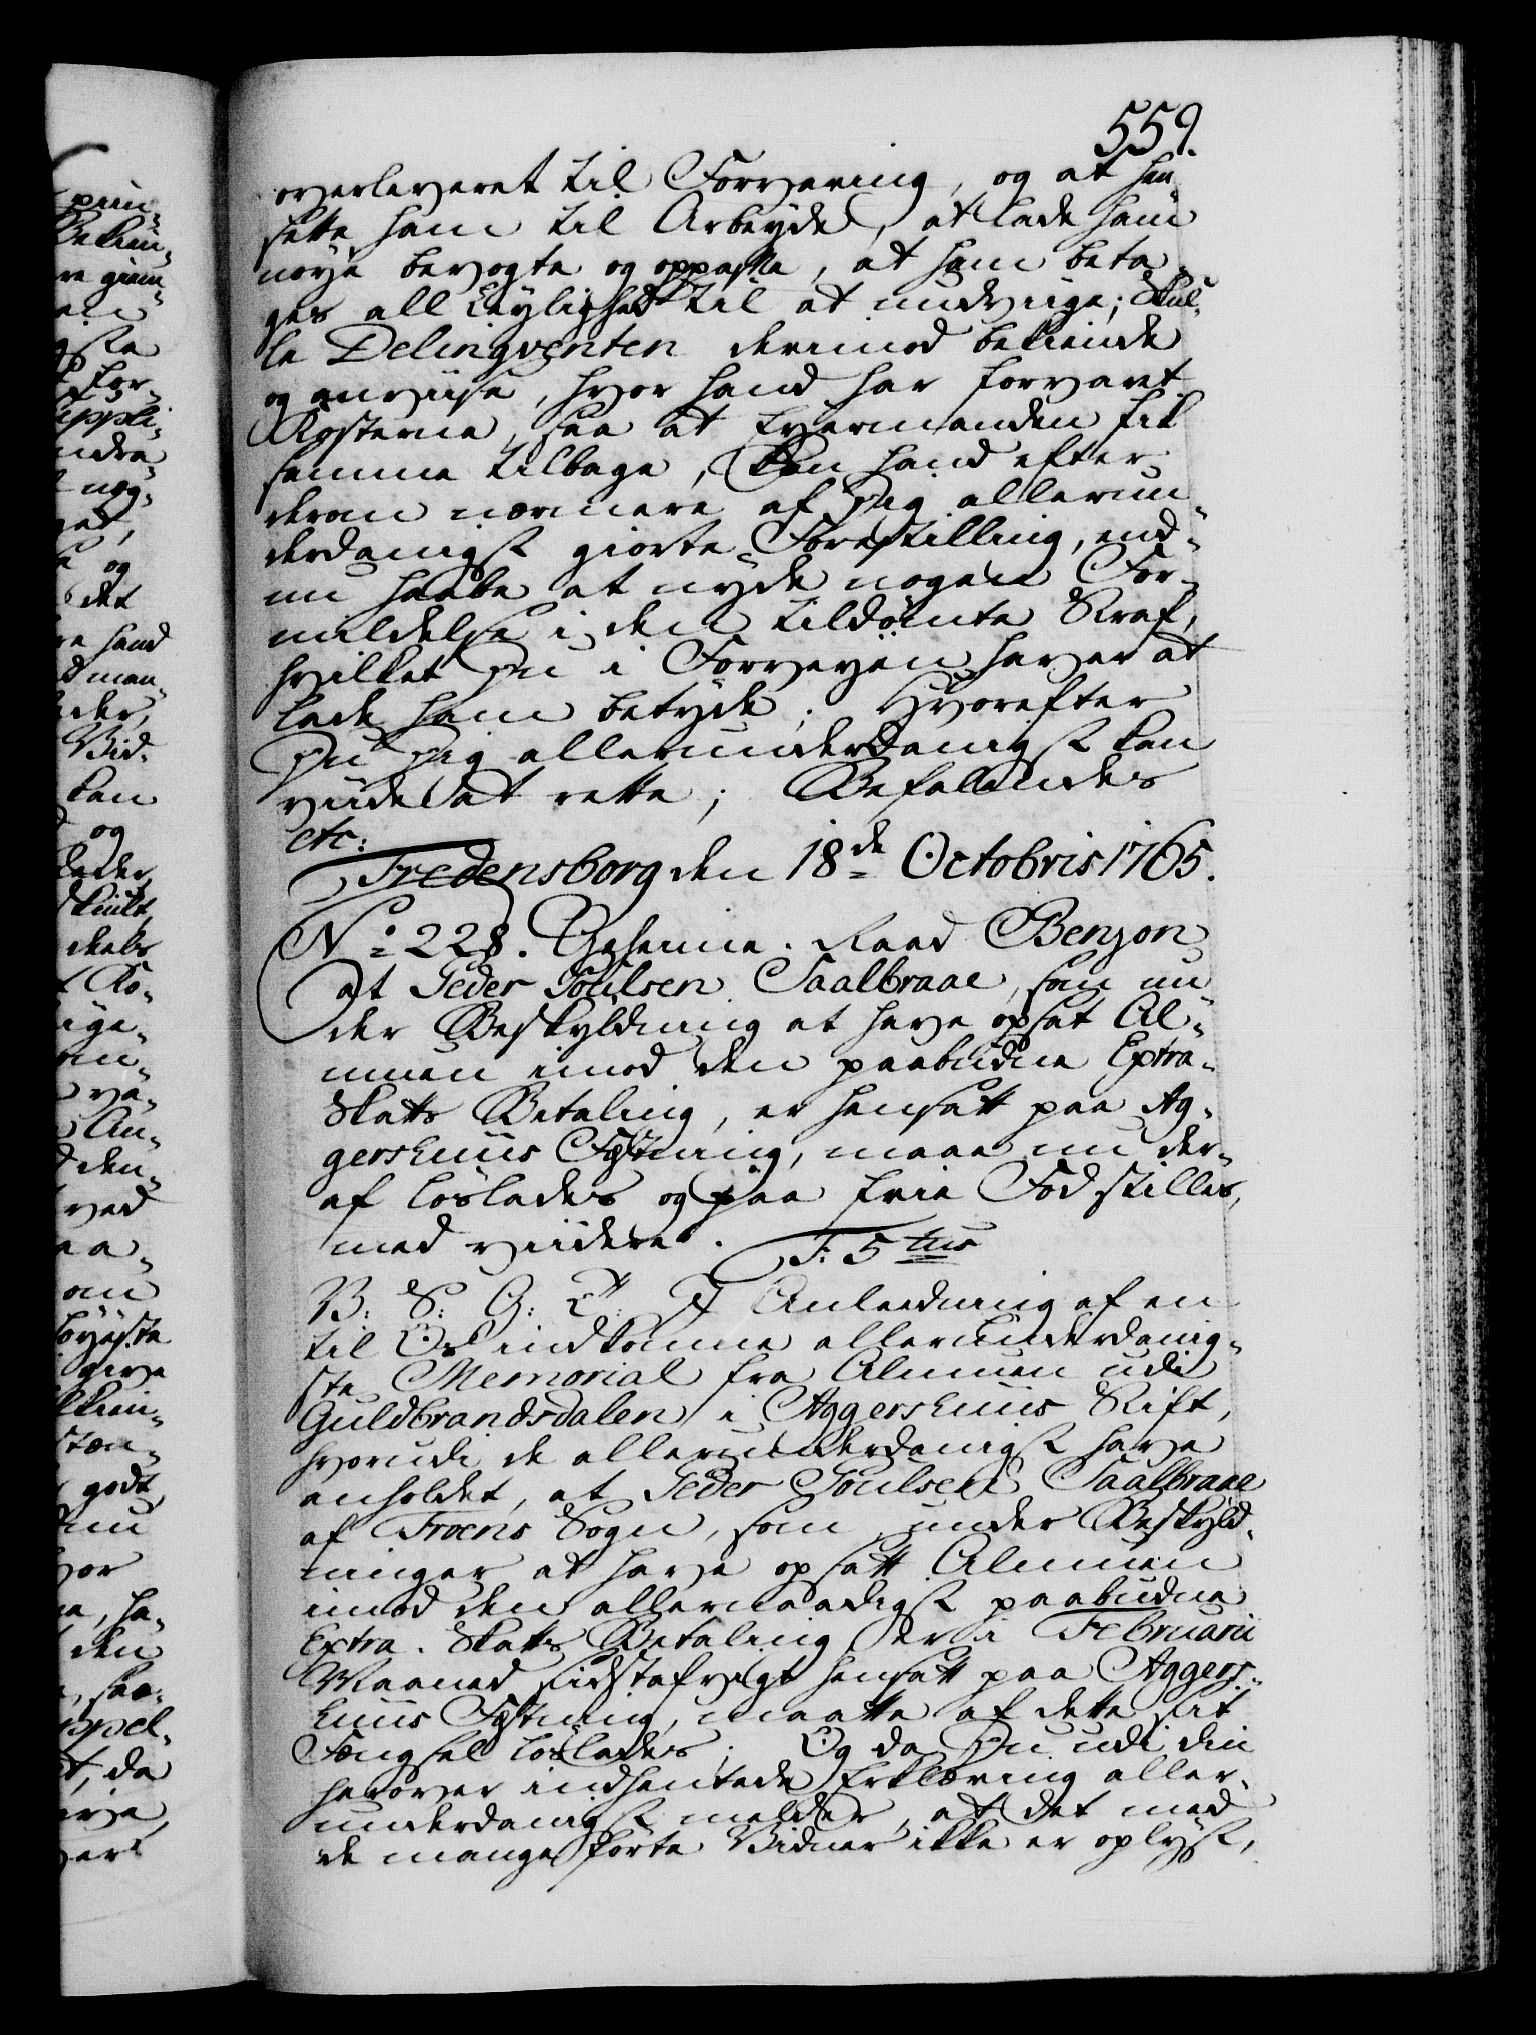 559.
overleveret til Forvaring, og at hen
sette ham til Arbeyde, at lade ham
nøye bevogte og oppasse, at ham beta-
ges all Leylighed til at undviige; Skul-
le Delinqventen derimod bekiende
og anviise, hvor hand har forvaret
Kosterne, saa at Eyermanden fik
samme tilbage, kan hand efter
deram nærmere af Dig allerun-
derdanigst giorte Forestilling, end-
nu haabe at nyde nogen For-
mildelse i den tildømte Straf,
hvilket Du i Forveyen haver at
lade ham betyde; Hvorefter
Du Dig allerunderdanigst kan
viide at rette; Befalendes
etc:
Fredensborg den 18de Octobris 1765.
No: 228. Geheime-Raad Benzon
at Peder Poulsen Saalbraae, som un-
der Beskyldning at have opsat Al-
muen imod den paabudne Extra-
Skatts Betaling, er hensatt paa Ag-
gershuus Fæstning, maae nu der-
af løslades og paa frie Fod stilles,
med viidere. F: 5tus
V: S: G: T: I Anleedning af en
til Os indkomne allerunderdanig-
ste Memorial fra Almuen udi
Guldbrandsdalen i Aggershuus Stift,
hvorudi de allerunderdanigst have
anholdet, at Peder Poulsen Saalbraae
af Froens Sogn, som under Beskyld-
ninger at have opsatt Almuen
imod den allernaadigst paabudne
Extra-Skatts Betaling er i Februarii
Maaned sidstafvigt hensatt paa Aggers-
huus Fæstning, maatte af dette sit
Fængsel løslades; Og da Du udi din
herover indhentede Erklæring aller-
underdanigst melder, at det med
de mange førte Vidner ikke er oplyst,